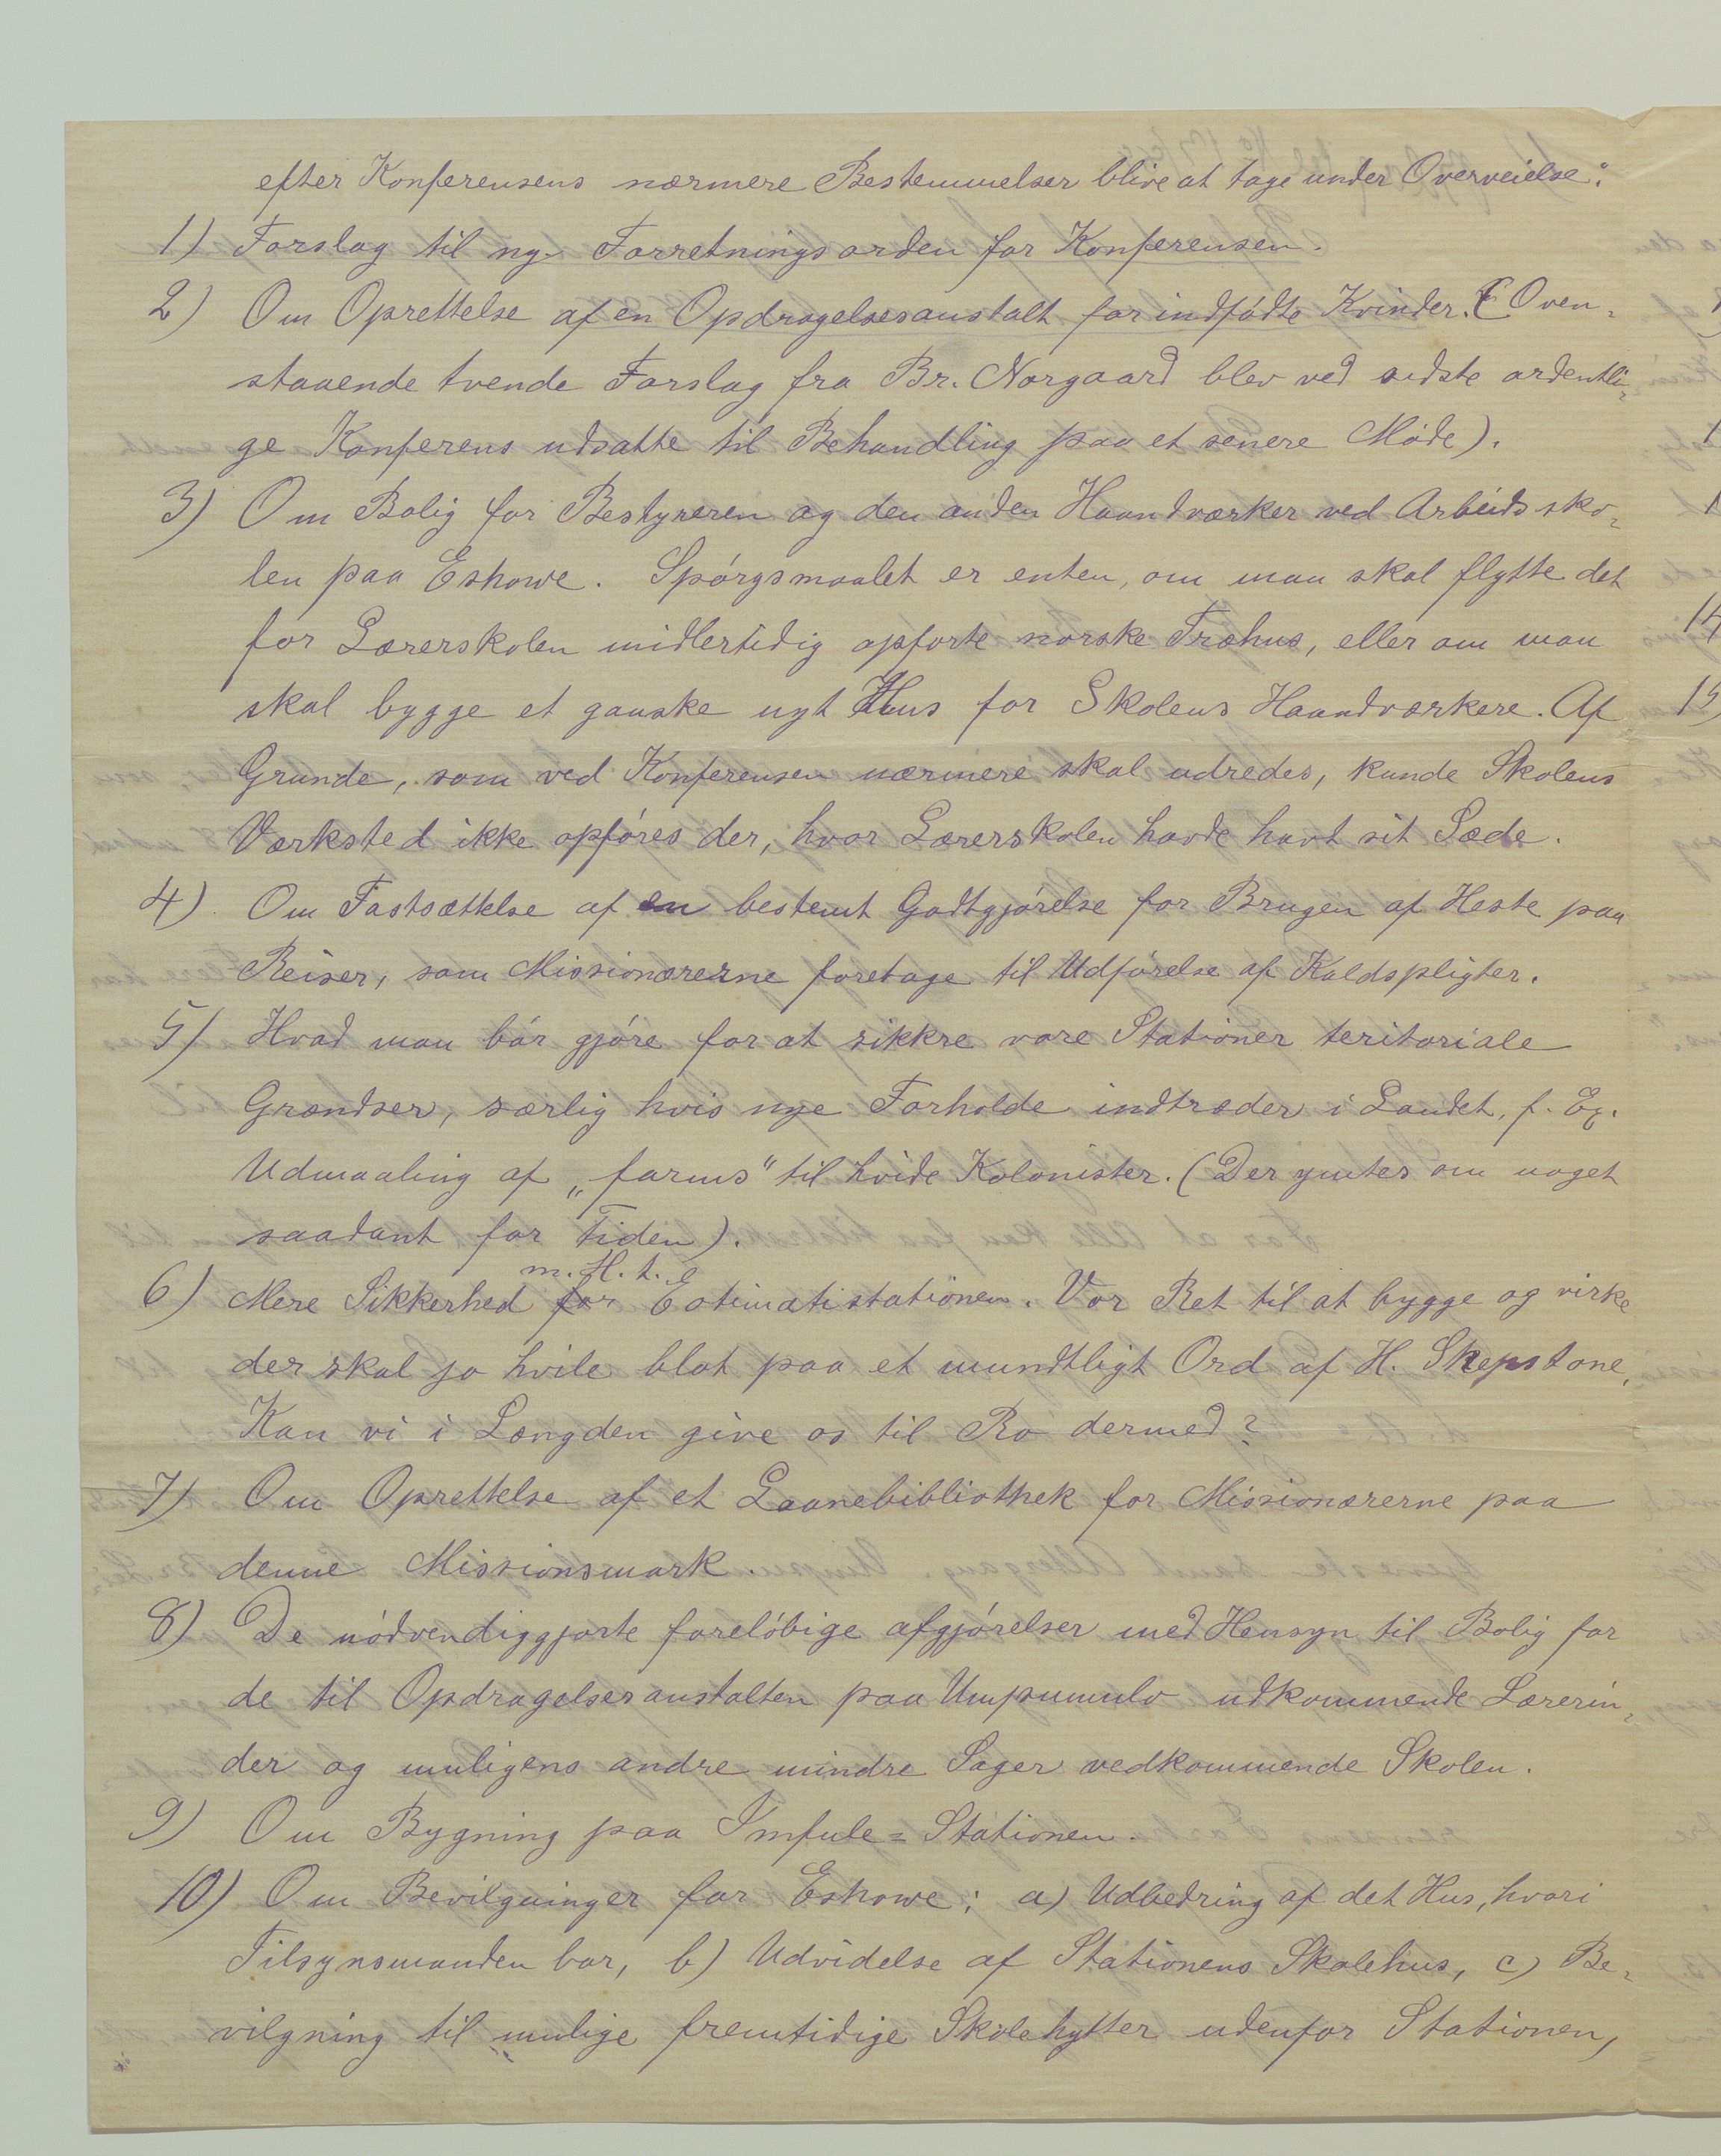 efter Konferensens nærmere Bestemmelser blive at tage under Overveielse:
1) Forslag til ny Forretningsorden for Konferensen.
2) Om Oprettelse af en Opdragelsesanstalt for indfødte Kvinder. (Oven-
staaende tvende Forslag fra Br. Norgaard blev ved sidste ordentli-
ge Konferens udsatte til Behandling paa et senere Møde).
3) Om Bolig for Bestyreren og den anden Haandværker ved Arbeidssko-
len paa Eshowe. Spørgsmaalet er enten, om man skal flytte det
for Lærerskolen midlertidig opførte norske Træhus, eller om man
skal bygge et ganske nyt Hus for Skolens Haandværkere. Af
Grunde, som ved Konferensen nærmere skal udredes, kunde Skolens
Værksted ikke opføres der, hvor Lærerskolen havde havt sit Sæde.
4) Om Fastsættelse af en bestemt Godtgjørelse for Brugen af Heste paa
Reiser, som Missionærerne foretage til Udførelse af Kaldspligter.
5) Hvad man bør gjøre for at sikkre vore Stationer teritoriale
Grændser, særlig hvis nye Forholde indtræder i Landet, f. Ex.
Udmaaling af „farms" til hvide Kolonister. (Der ymtes om noget
saadant for Tiden).
m. H. t.
6) Mere Sikkerhed for Eotimatistationen. Vor Ret til at bygge og virke
der skal jo hvile blot paa et mundtligt Ord af H. Shepstone,
Kan vi i Længden give os til Ro dermed?
7) Om Oprettelse af et Laanebibliothek for Missionærerne paa
denne Missionsmark.
8) De nødvendiggjorte foreløbige afgjørelser med Hensyn til Bolig for
de til Opdragelsesanstalten paa Umpumulo udkommende Lærerin-
der og muligens andre mindre Sager vedkommende Skolen.
9) Om Bygning paa Imfule=Stationen.
10) Om Bevilgninger for Eshowe: a) Udbedring af det Hus, hvori
Tilsynsmanden bor, b) Udvidelse af Stationens Skolehus, c) Be-
vilgning til mulige fremtidige Skolehytter udenfor Stationen,